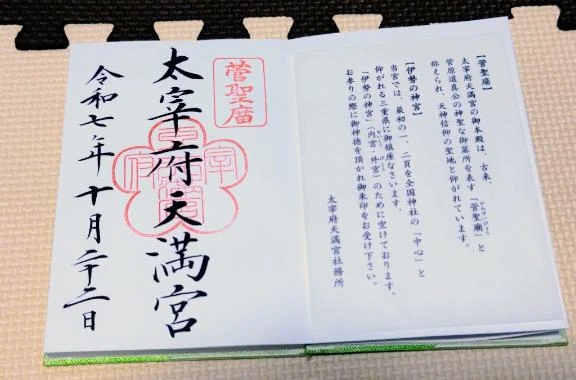 【菅聖廟】
太宰府天満宮の御本殿は、古来、
菅原道真公の神聖な御墓所を表す「菅聖廟」と
かんせいびょう
称えられ、天神信仰の聖地と仰がれています。
【伊勢の神宮】
当宮では、最初の一、二頁を全国神社の「中心」と
仰がれる三重県に御鎮座なさいます、
「伊勢の神宮」(内宮・外宮)のために空けております。
お参りの際に御神徳を頂かれ御朱印をお受け下さい。
太宰府天満宮社務所
菅聖廟
太宰府天満宮
令和七年十月二十二日